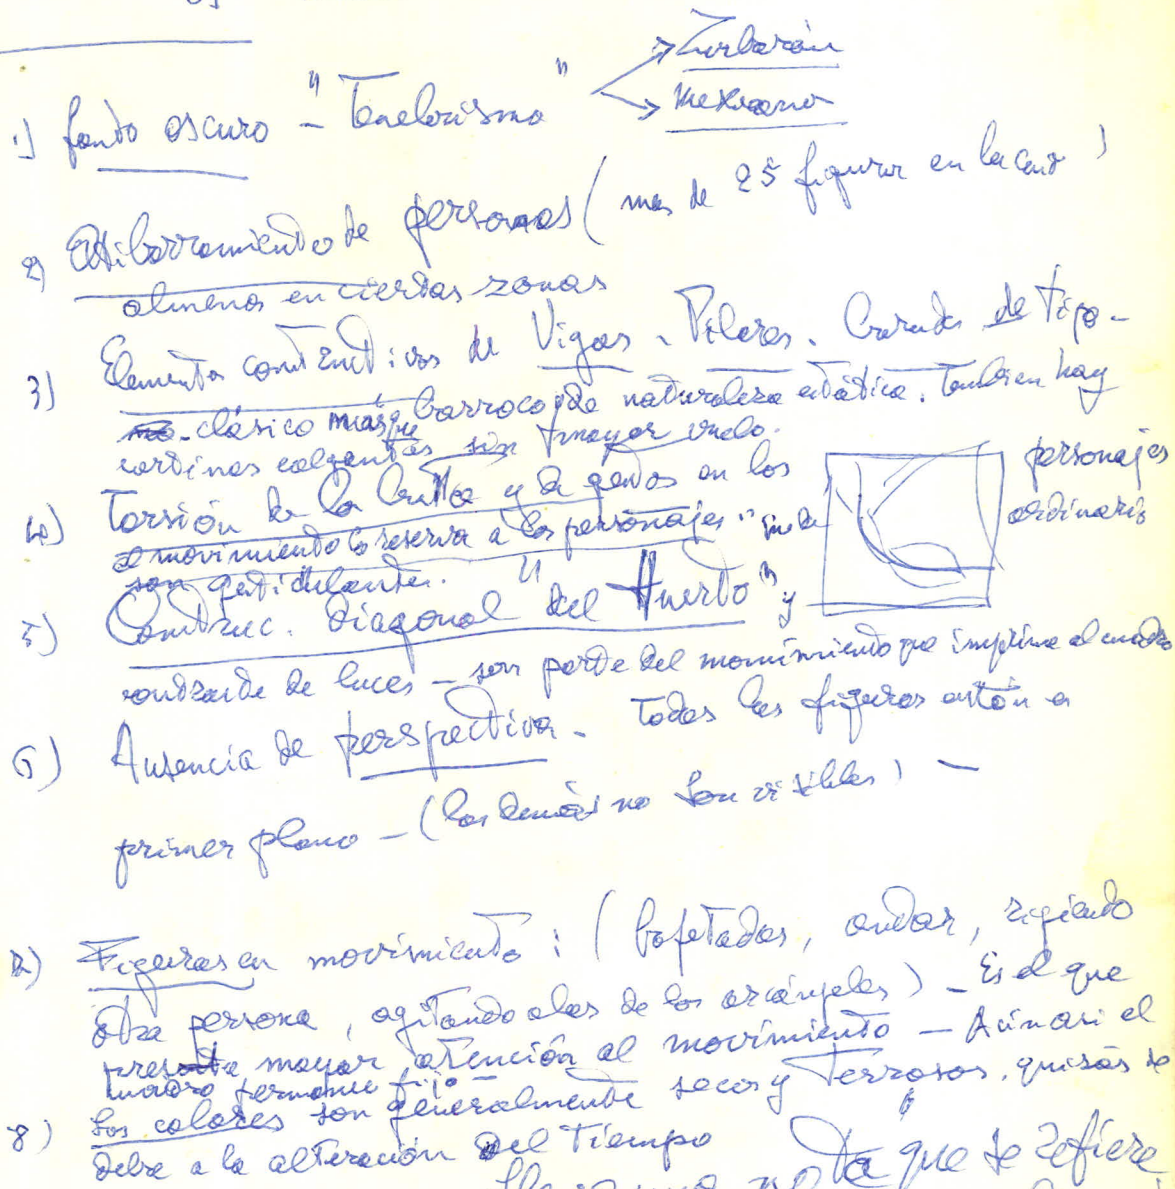 Zurbarán
1) fondo oscuro - "Tenebrismo"
mexicano
2) Atiborramiento de personas (mas de 25 figuras en
almenos en ciertas zonas
3) Elementos de Vigas, Pilares, de tipo-
clásico mas que barroco, de naturaleza estática. Tambien hay
cortinas colgantes sin mayor vuelo.
4) Torsión de la y de gestos en los personajes
el movimiento lo reserva a los personajes ordinarios
son gesticulantes.
5) Construc. diagonal "del Huerto" y
contraste de luces - son parte del movimiento que imprime al cuadro
6) Ausencia de perspectiva - Todas las figuras están a
primer plano - (los demás no son visibles) -
Figuras en movimiento: (bofetadas, andar,
otra persona, agitando alas de los arcángeles) - Es el que
presta mayor atención al movimiento - Acinasi el
cuadro permanece fijo -
8) Los colores son generalmente secos y Terrosos, quisás se
debe a la alteración del Tiempo
que se refiere